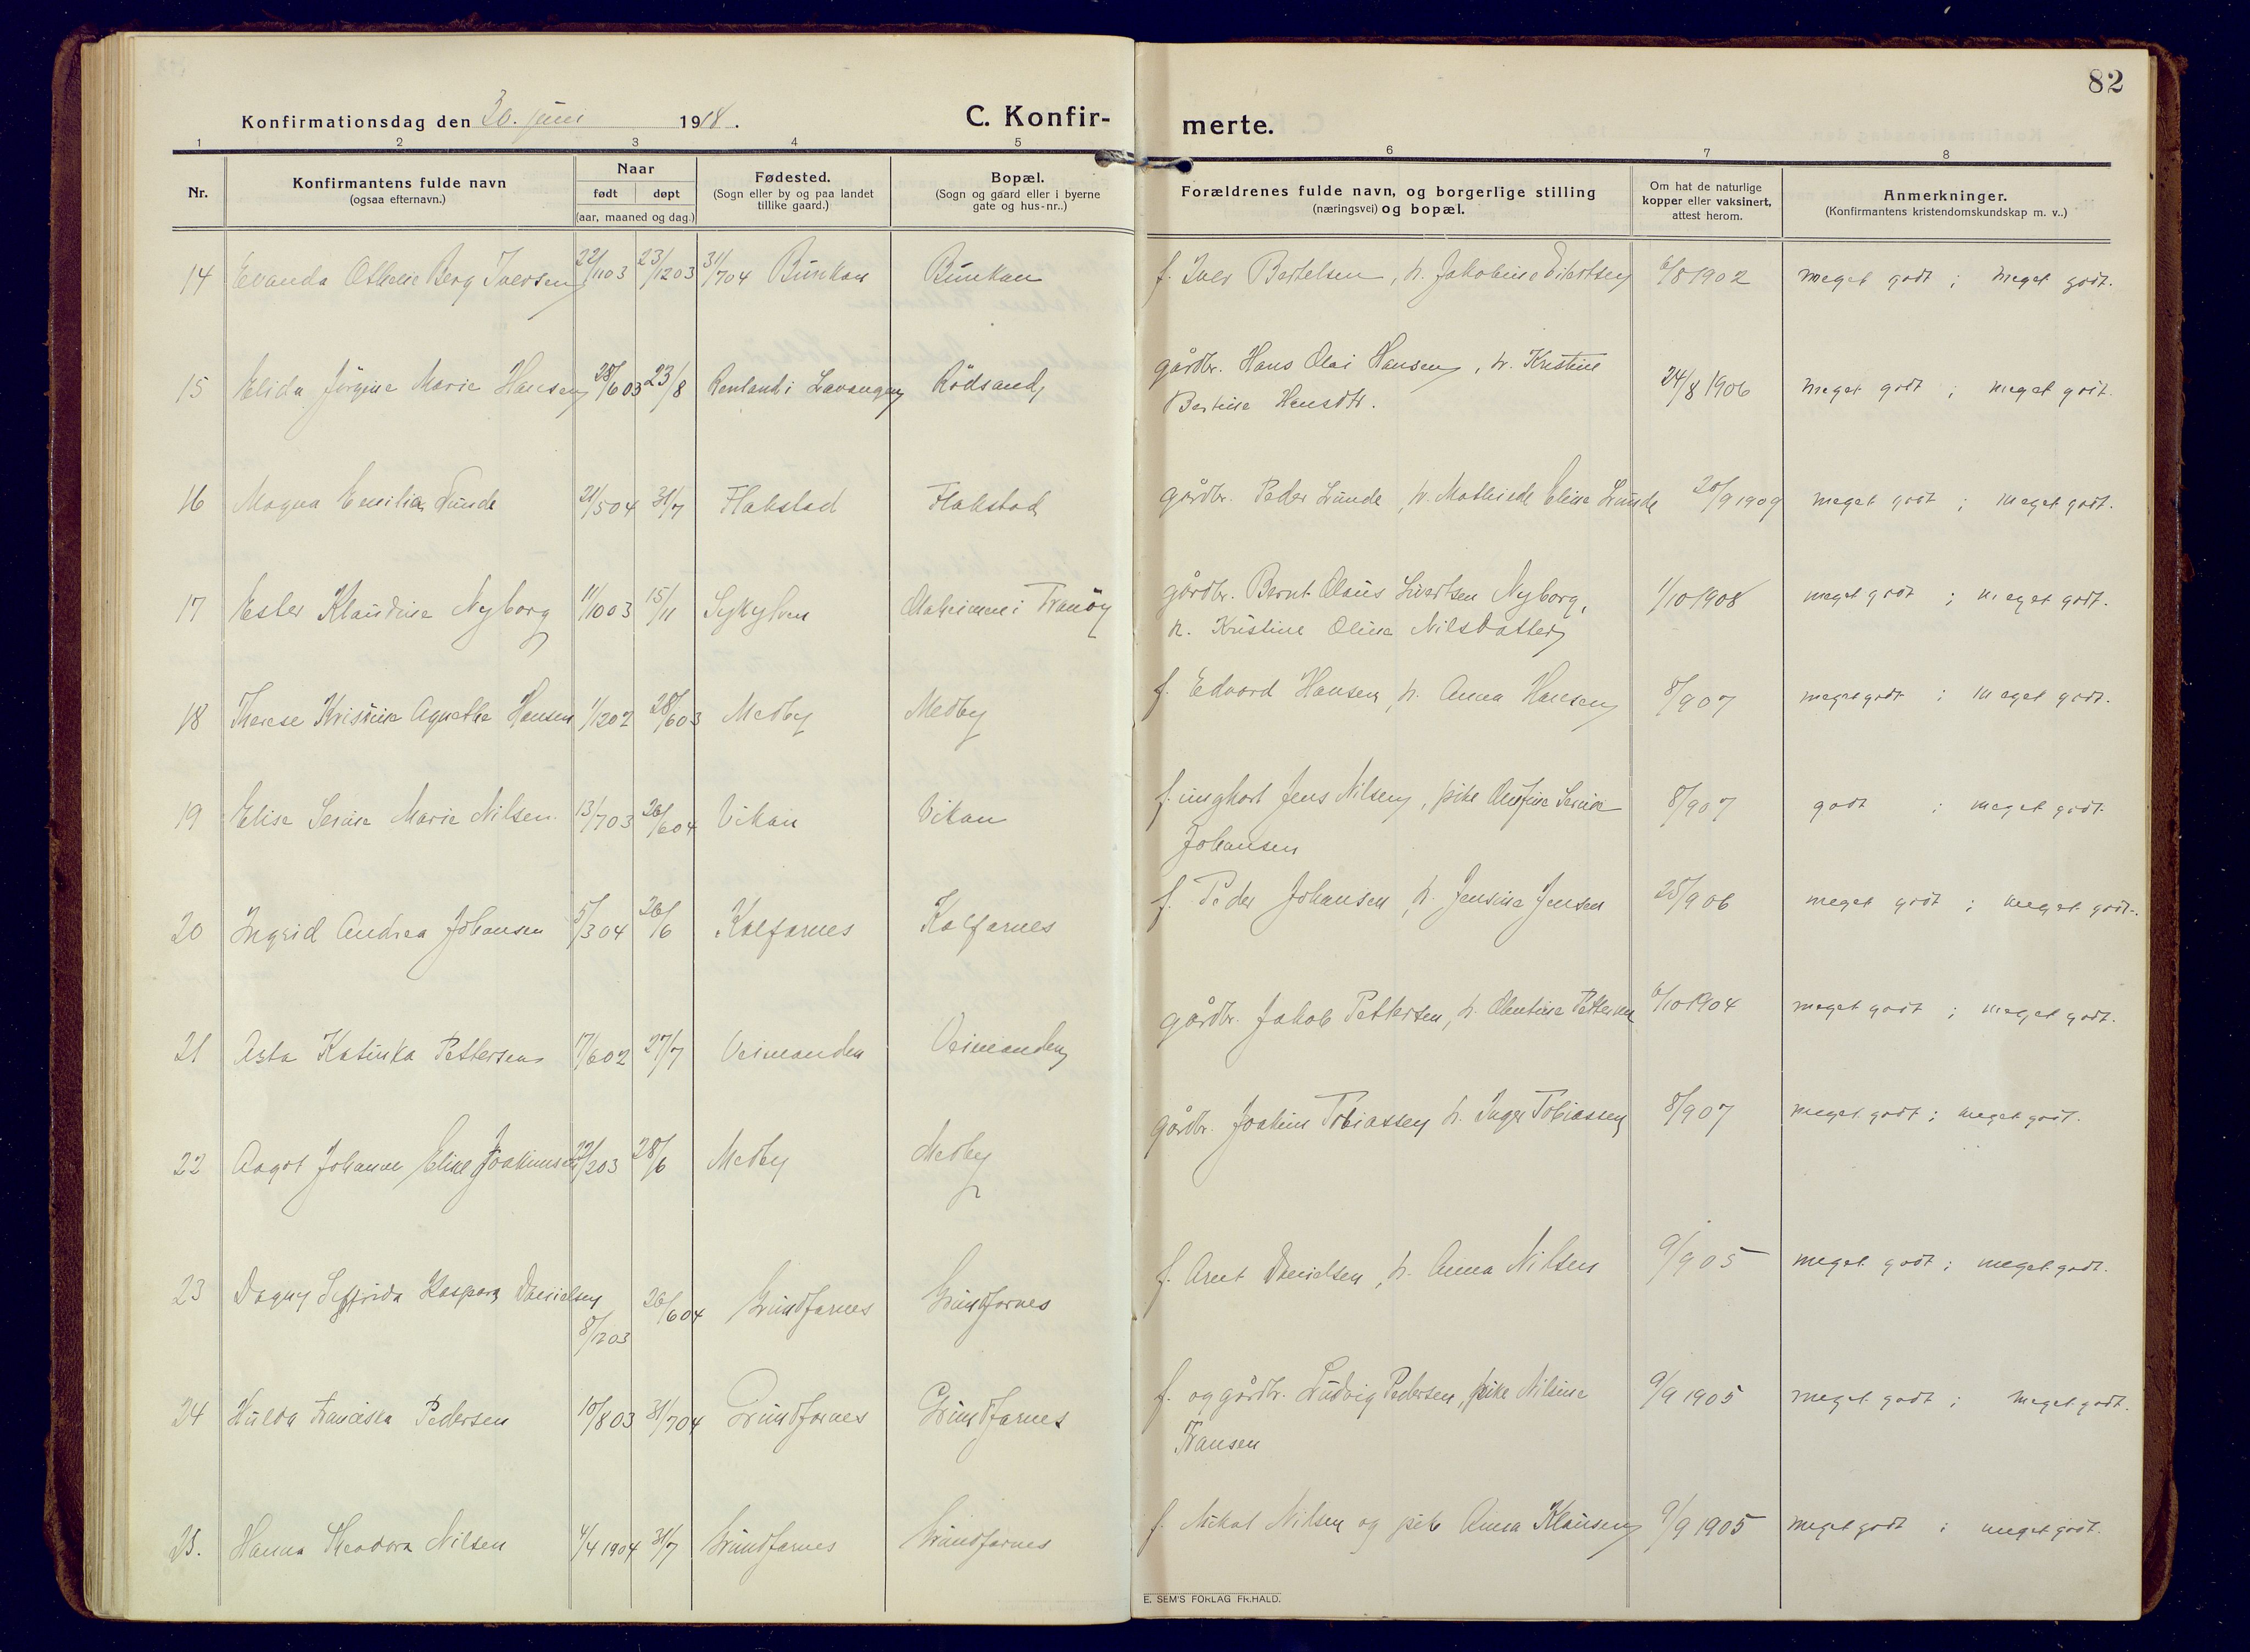 82
Konfirmationsdag den 30. juni 1918. C. Konfir- merte.
1 2 3 4 5 6 7 8
Nr. Konfirmantens fulde navn (ogsaa efternavn.) Naar født døpt (aar, maaned og dag.) Fødested. (Sogn eller by og paa landet tillike gaard.) Bopæl. (Sogn og gaard eller i byerne gate og hus-nr..) Forældrenes fulde navn, og borgerlige stilling (næringsvei) og bopæl. Om hat de naturlige kopper eller vaksinert, attest herom. Anmerkninger. (Konfirmantens kristendomskundskap m. v..)
14 Evanda Othelie Berg Iversen 22/1103 23/1203 31/704 Bunkan Bunkan f. Iver Bertelsen, h. Jakobine Eilertsen 6/8 1902 meget godt ; meget godt.
15 Elida Jørgine Marie Hansen 28/603 23/8 Renland i Lavangen Rödsand gårdbr. Hans Olai Hansen, h. Kristine
Bertine Hansdtr. 24/8 1906 meget godt ; meget godt.
16 Magna Emilie Lunde 21/504 31/7 Flakstad Flakstad gårdbr. Peder Lunde, h. Mathilde Elise Lunde 20/9 1909 meget godt ; meget godt.
17 Ester Klaudine Nyborg 11/1003 15/11 Sykylven i Tranöy gårdbr. Bernt Olaus Sivertsen Nyborg,
h. Kristine Oline Nilsdatter 1/10 1908 meget godt ; meget godt.
18 Therese Kristine Agnethe Hansen 1/1202 28/603 Medby Medby f. Edvard Hansen, h. Anna Hansen 8/907 meget godt ; meget godt.
19 Elise Serine Marie Nilsen 13/703 26/604 Vikan Vikan f. ungkarl Jens Nilsen, pike Serine
Johansen 8/907 godt ; meget godt.
20 Ingrid Andrea Johansen 5/304 26/6 Kalfarnes Kalfarnes f. Peder Johansen, h. Jensine Jensen 25/906 meget godt ; meget godt.
21 Asta Katinka Pettersen 17/602 27/7 Veimanden Veimanden gårdbr. Jakob Pettersen, h. Pettersen 6/10 1904 meget godt ; meget godt.
22 Aagot Johanne Elise Joakimsen 22/203 28/6 Medby Medby gårdbr. Joakim Tobiassen h. Inger Tobiassen 8/907 meget godt ; meget godt.
23 Dagny Seffrida Kaspara Danielsen
8/1203 26/604 Grundfarnes Grundfarnes f. Arnt Danielsen, h. Anna Nilsen 9/905 meget godt ; meget godt.
24 Hulda Franciska Pedersen 10/803 31/704 Grundfarnes Grundfarnes f. og gårdbr. Ludvig Pedersen, pike Nilsine
Fransen 9/9 1905 meget godt ; meget godt.
25. Hanna Theodora Nilsen 4/4 1904 31/7 Grundfarnes Grundfarnes f. Mikal Nilsen og pike Anna Klausen 9/9 1905 meget godt ; meget godt.
E. SEM'S FORLAG FR.HALD.